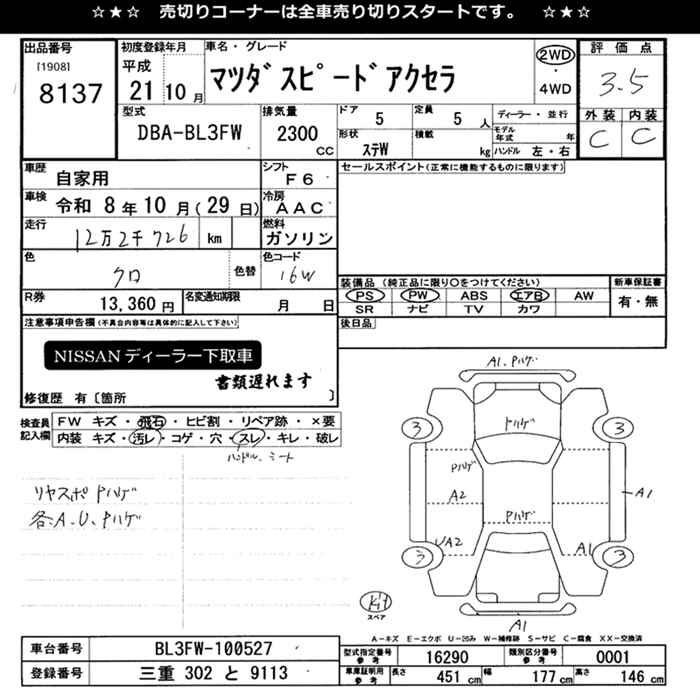 ☆★☆ 売切りコーナーは全車売り切りスタートです。 ☆★☆
出品番号
[1908]
8137
初度登録年月
平成
21年10月
車名・グレード
マツダスピードアクセラ
2WD
・
4WD
評価点
3.5
外装 内装
C C
型式
DBA-BL3FW
排気量
2300
CC
ドア
5
定員
5人
ディーラー・並行
モデル年式 年
形状
ステW
積載
kg
ハンドル 左・右
車歴
自家用
シフト
F6
セールスポイント(正常に機能するものに限ります)
車検
令和 8年10月(29日)
冷房
AAC
走行
12万2千726 km
燃料
ガソリン
色
クロ
色替
色コード
16W
装備品 (純正品に限り○をつけてください)
PS PW ABS エアB AW
SR ナビ TV カワ
新車保証書
有・無
R券
13,360円
名変通知期限
月 日
後日品
注意事項申告欄(不具合内容等は具体的に記入して下さい)
NISSANディーラー下取車
書類遅れます
修復歴 有〔箇所 〕
検査員記入欄
FW キズ・飛石・ヒビ割・リペア跡・×要
内装 キズ・汚レ・コゲ・穴・スレ・キレ・破レ
ハンドル、シート
リヤスポ Pハゲ
各:A.U.Pハゲ
A1.Pハゲ
トハゲ
3 3
Pハゲ
A2
A1
Pハゲ
A2
A1
3 3
Kit
スペア
A1
A-キズ E-エクボ U-凹み W-補修跡 S-サビ C-腐食 XX-交換済
車台番号
BL3FW-100527
型式指定番号
参考
16290
類別区分番号
参考
0001
登録番号
三重 302 と 9113
車庫証明用
参考
長さ
451 cm
幅
177 cm
高さ
146 cm